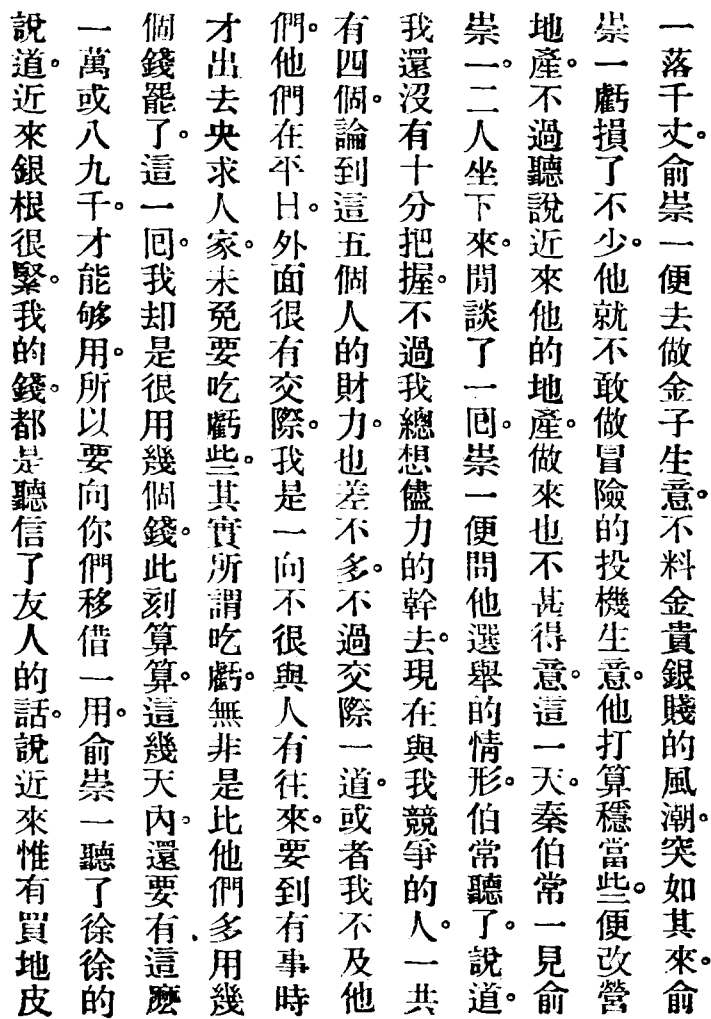 一落千丈。俞崇一便去做金子生意。不料金貴銀賤的風潮。突如其來。俞
崇一虧損了不少。他就不敢做冒險的投機生意。他打算穩當些。便改營
地產。不過聽說近來他的地產。做來也不甚得意。這一天。秦伯常一見俞
崇一。二人坐下來。閒談了一囘。崇一便問他選舉的情形。伯常聽了。說道。
我還沒有十分把握。不過我總想儘力的幹去。現在與我競爭的人。一共
有四個。論到這五個人的財力。也差不多。不過交際一道。或者我不及他
們。他們在平日。外面很有交際。我是一向不很與人有往來。要到有事時
才出去央求人家。未免要吃虧些。其實所謂吃虧。無非是比他們多用幾
個錢罷了。這一囘。我却是很用幾個錢。此刻算算。這幾天內。還要有這麽
一萬或八九千。才能够用。所以要向你們移借一用。俞崇一聽了徐徐的
說道。近來銀根很緊。我的錢。都是聽信了友人的話。說近來惟有買地皮